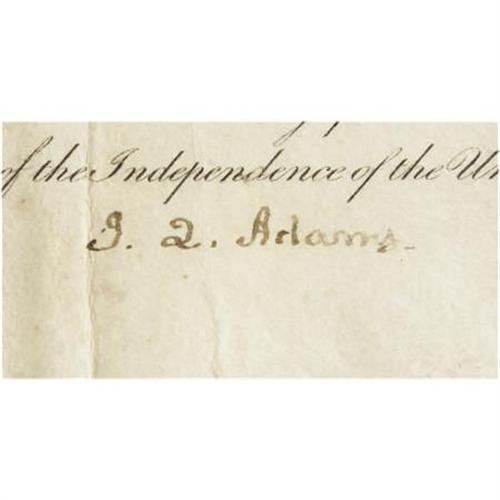 of the Independence of the Un
J. Q. Adams.